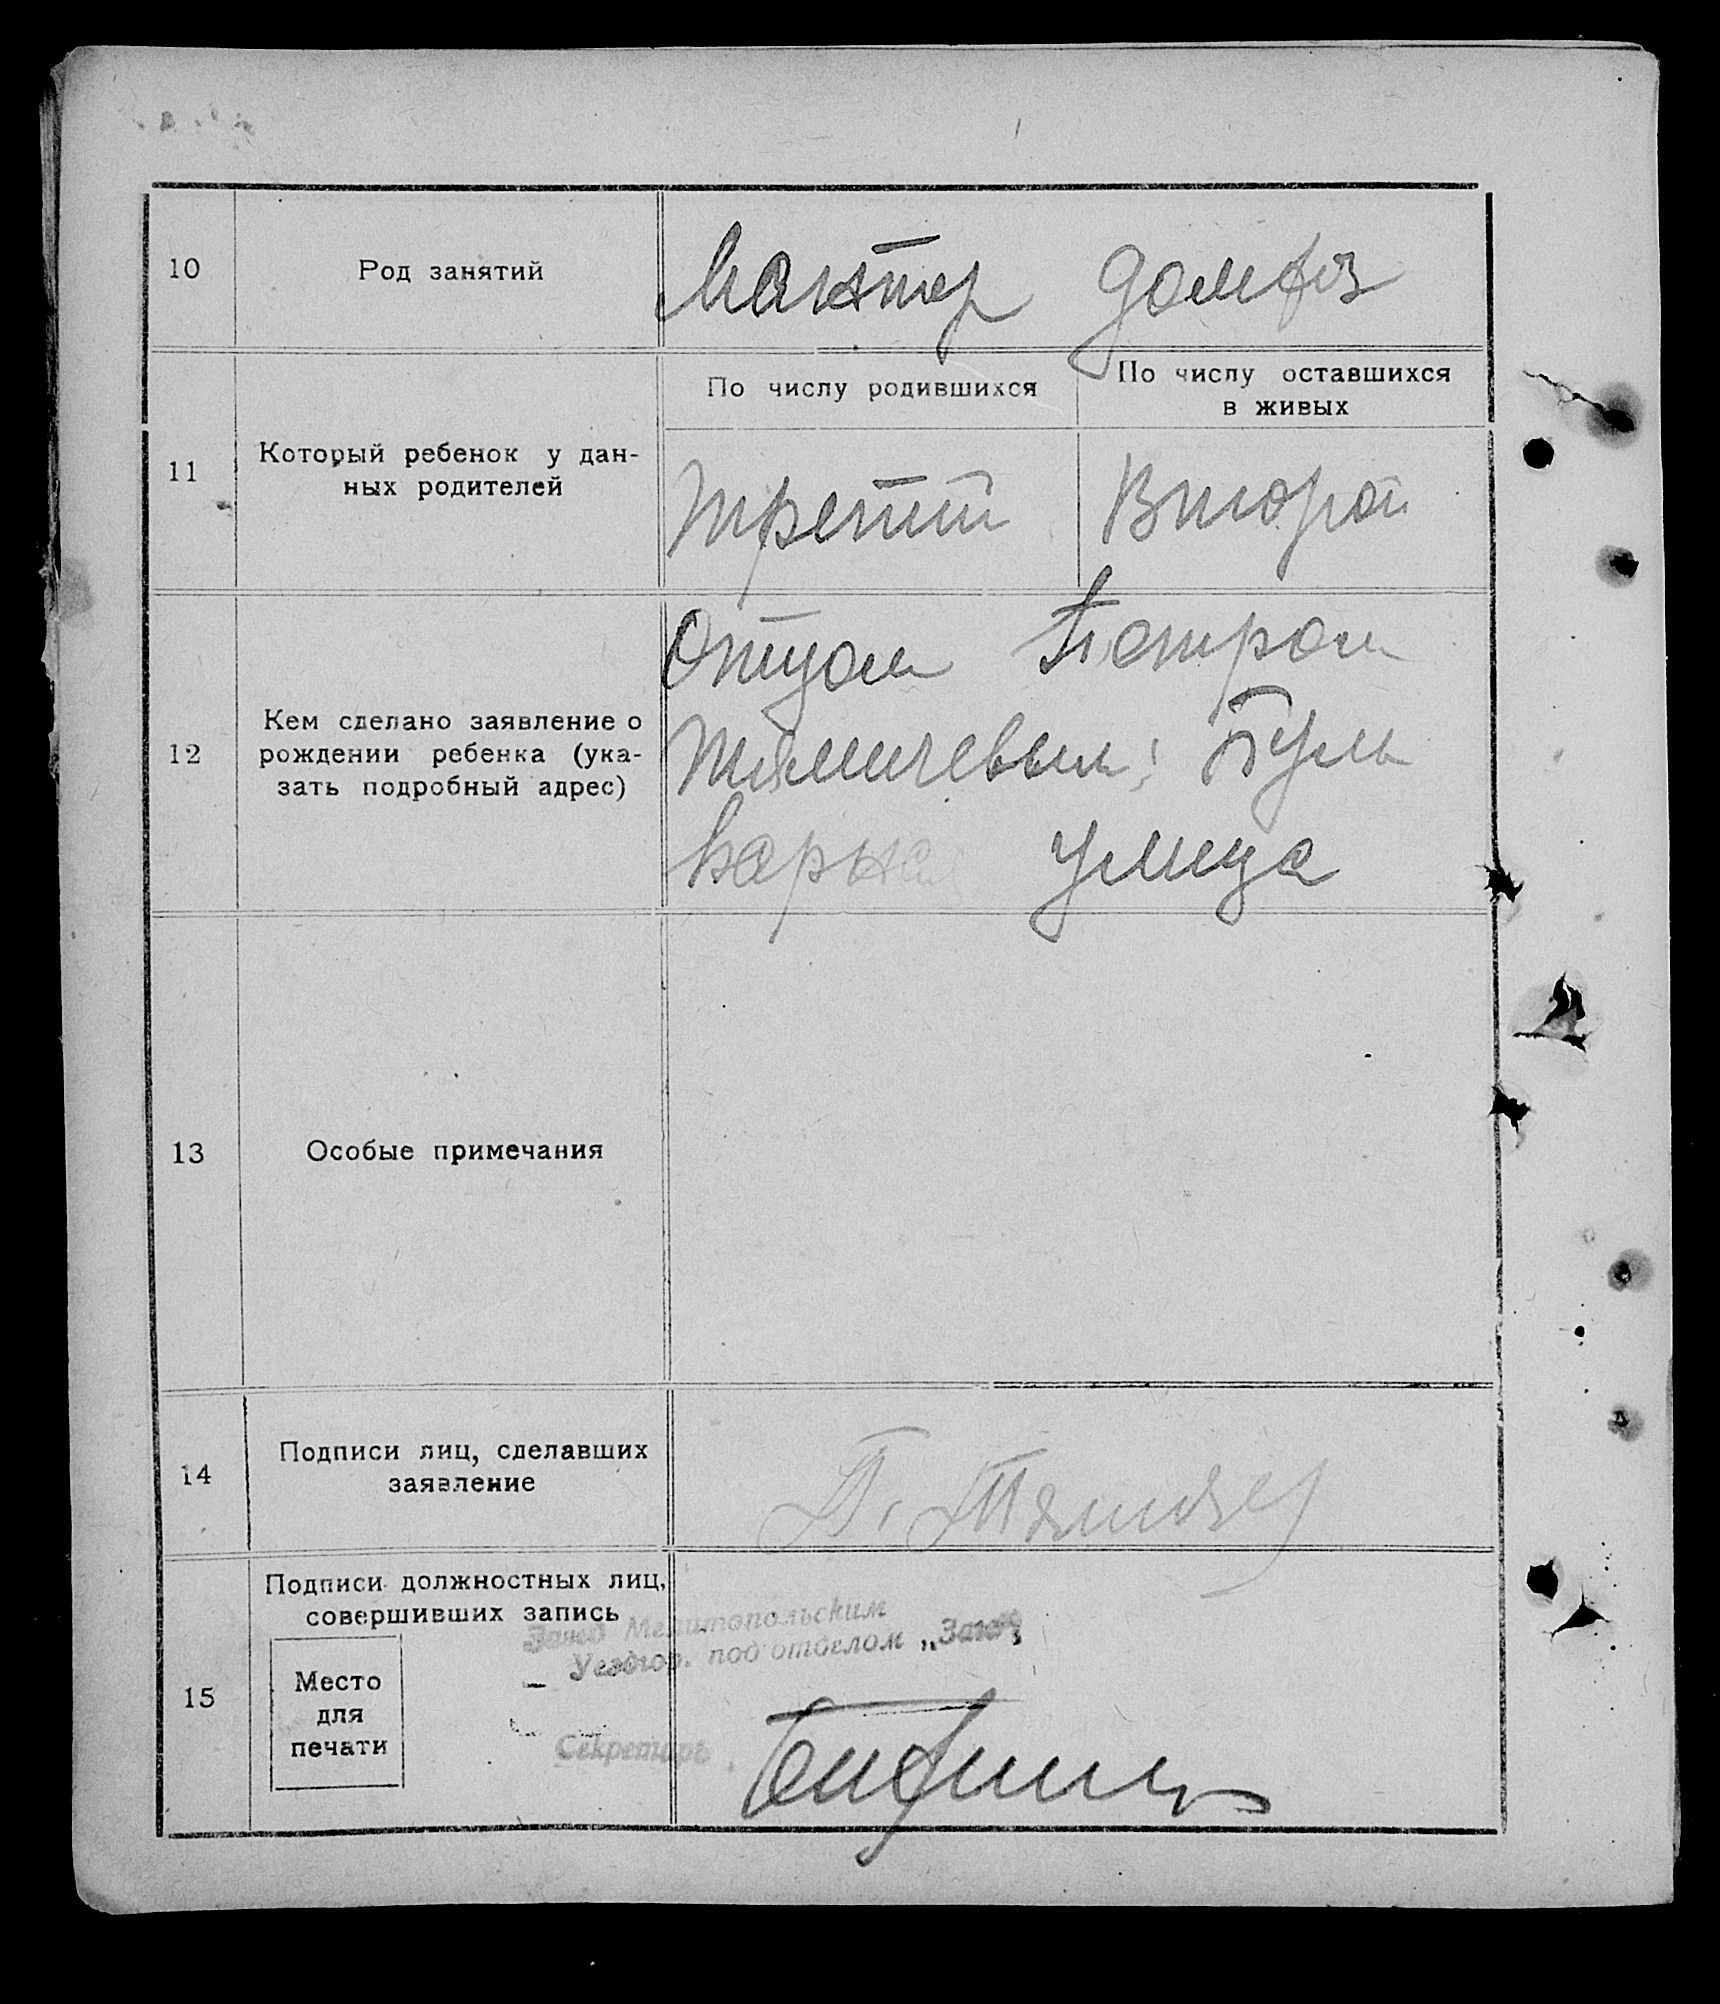 10 Род занятий
домхоз
11 Который ребенок у дан-
ных родителей
По числу родившихся
По числу оставшихся
в живых
третий
Второй
12 Кем сделано заявление о
рождении ребенка (ука-
зать подробный адрес)
Отцом Петром
Тимичевым; Буль
варная улица
13 Особые примечания
14 Подписи лиц, сделавших
заявление
П.
15 Подписи должностных лиц,
совершивших запись
Завед Мелитопольским
Уездгор. подотделом „Загс“
Место
для
печати
Секретарь